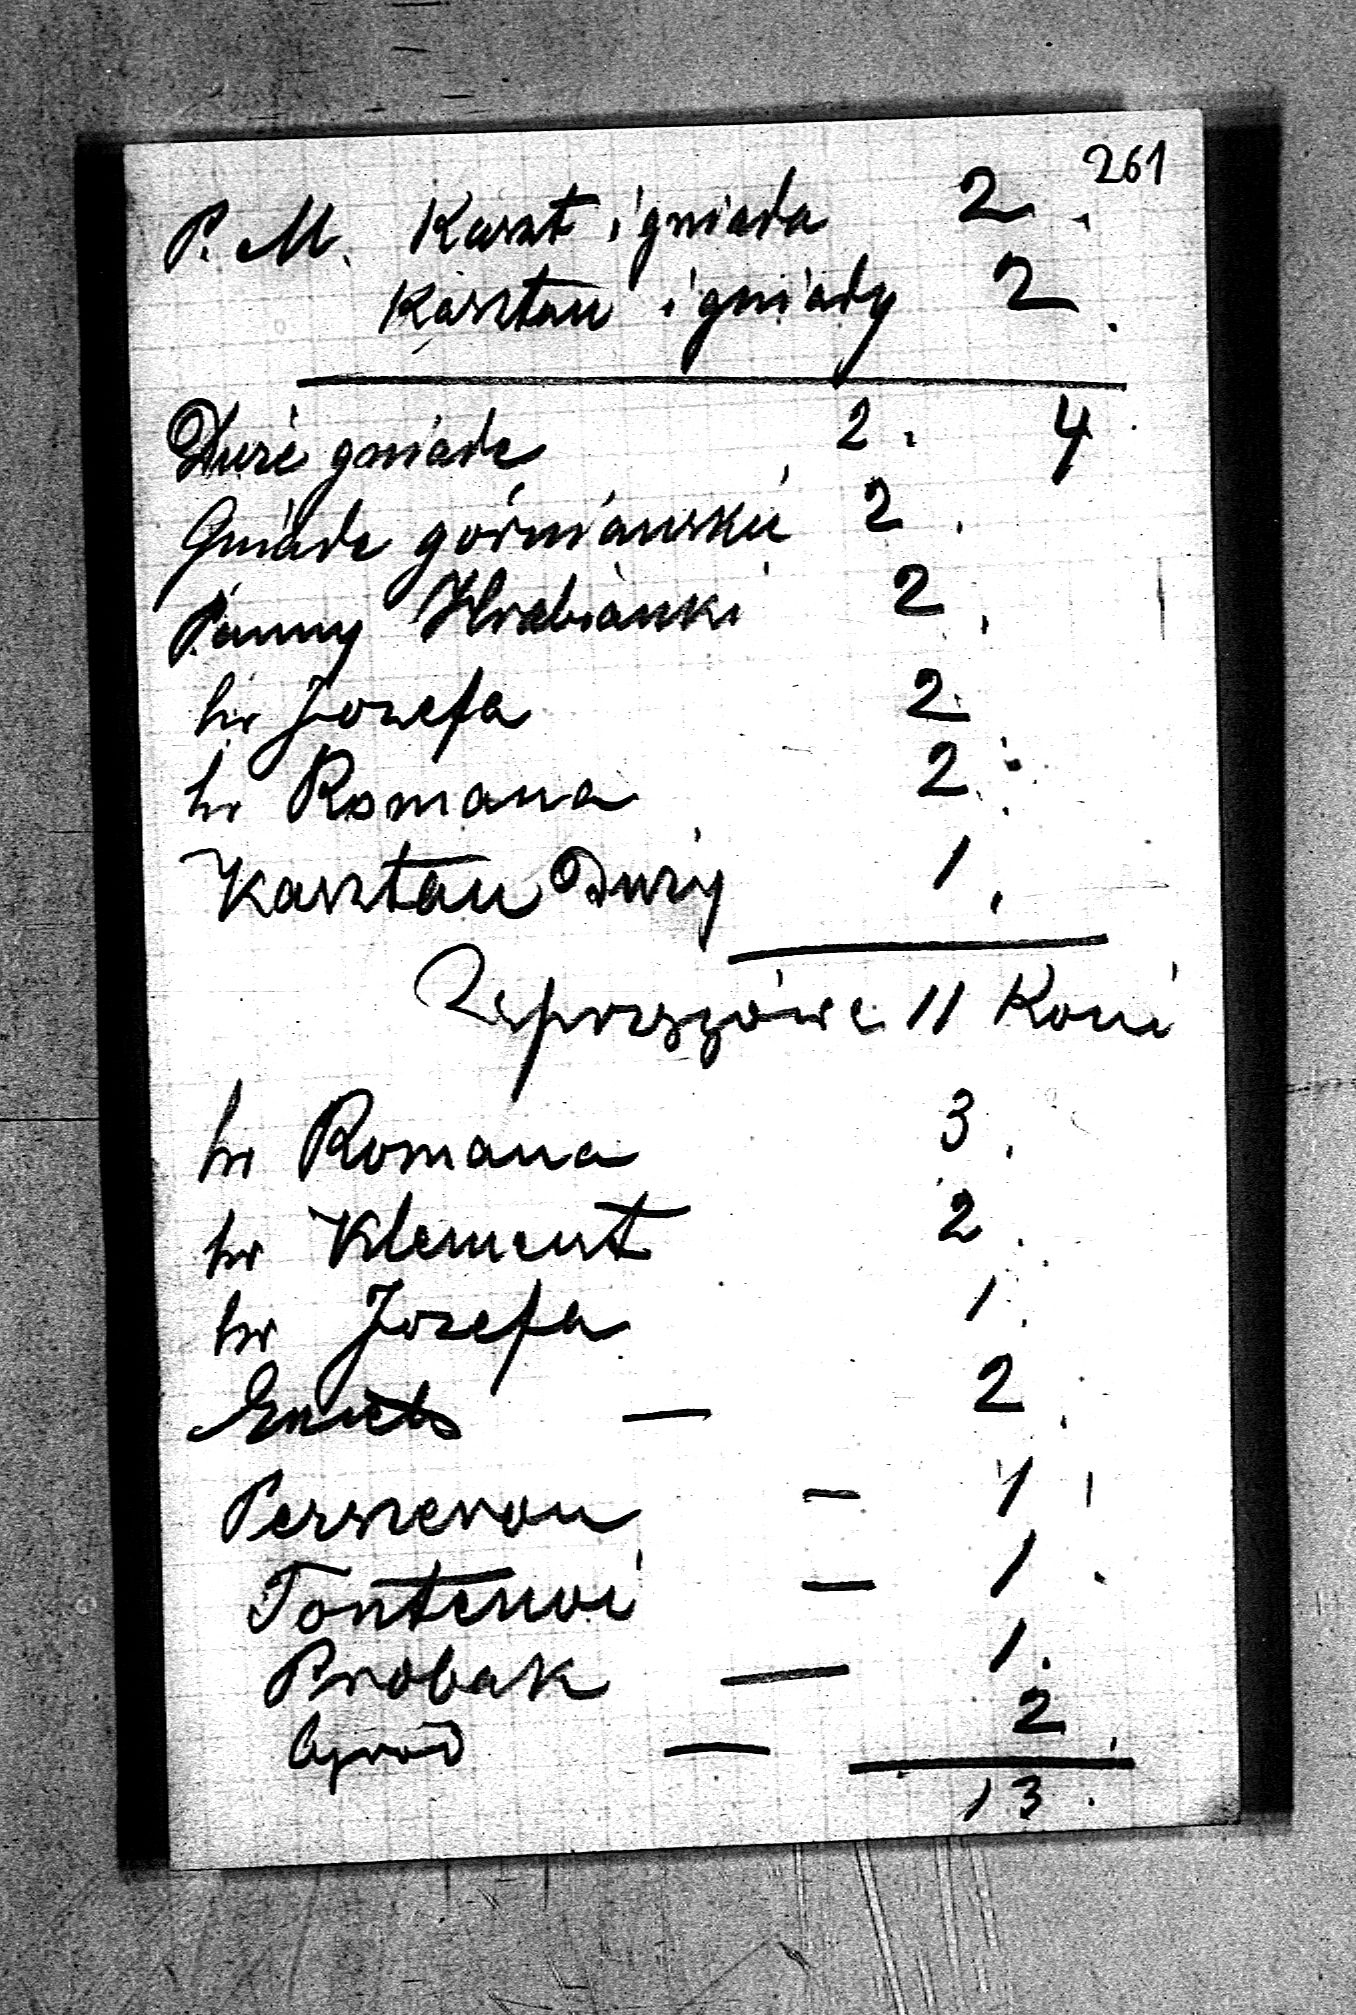 261
P. M. Karat i gniada 2.
Kasztan i gniady 2.
4
Duże gniade 2.
Gniade górniańskie 2.
Panny Hrabianki 2.
hr Jozefa 2
hr Romana 2.
Kasztan Duży 1.
11 Koni
hr Romana 3.
hr Klement 2.
hr Jozefa 1.
— 2.
Perszeron — 1
Fontenoi — 1.
Probak — 1.
Ogród — 2.
13.